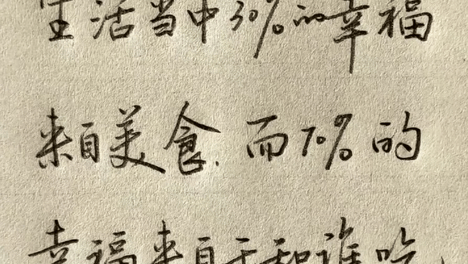 生活当中30%的幸福
来自美食.而70%的
幸福来自于和谁吃.